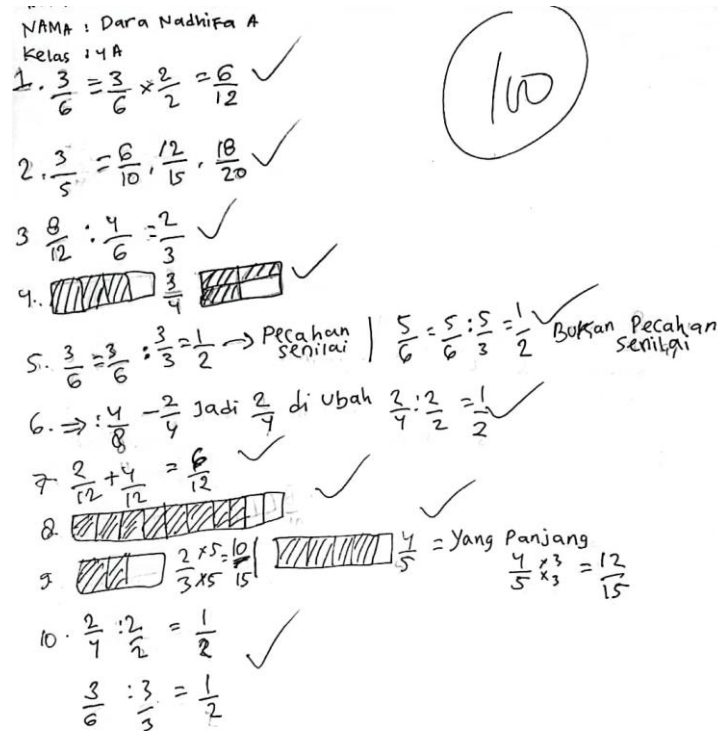 NAMA : Dara Nadhifa A
Kelas : 4A
100
1. 3/6 = 3/6 x 2/2 = 6/12 ✓
2. 3/5 = 6/10, 12/15, 18/20 ✓
3 8/12 : 4/6 = 2/3 ✓
4. 3/4 ✓
5. 3/6 = 3/6 : 3/3 = 1/2 → Pecahan senilai | 5/6 = 5/6 : 5/3 = 1/2 ✓ Bukan Pecahan senilai
6. ⇒ : 4/8 - 2/4 Jadi 2/4 di ubah 2/4 : 2/2 = 1/2 ✓
7 2/12 + 4/12 = 6/12 ✓
8. ✓
9 2/3 x5/x5 = 10/15 | 4/5 = Yang Panjang ✓
4/5 x3/x3 = 12/15
10. 2/4 : 2/2 = 1/2 ✓
3/6 : 3/3 = 1/2